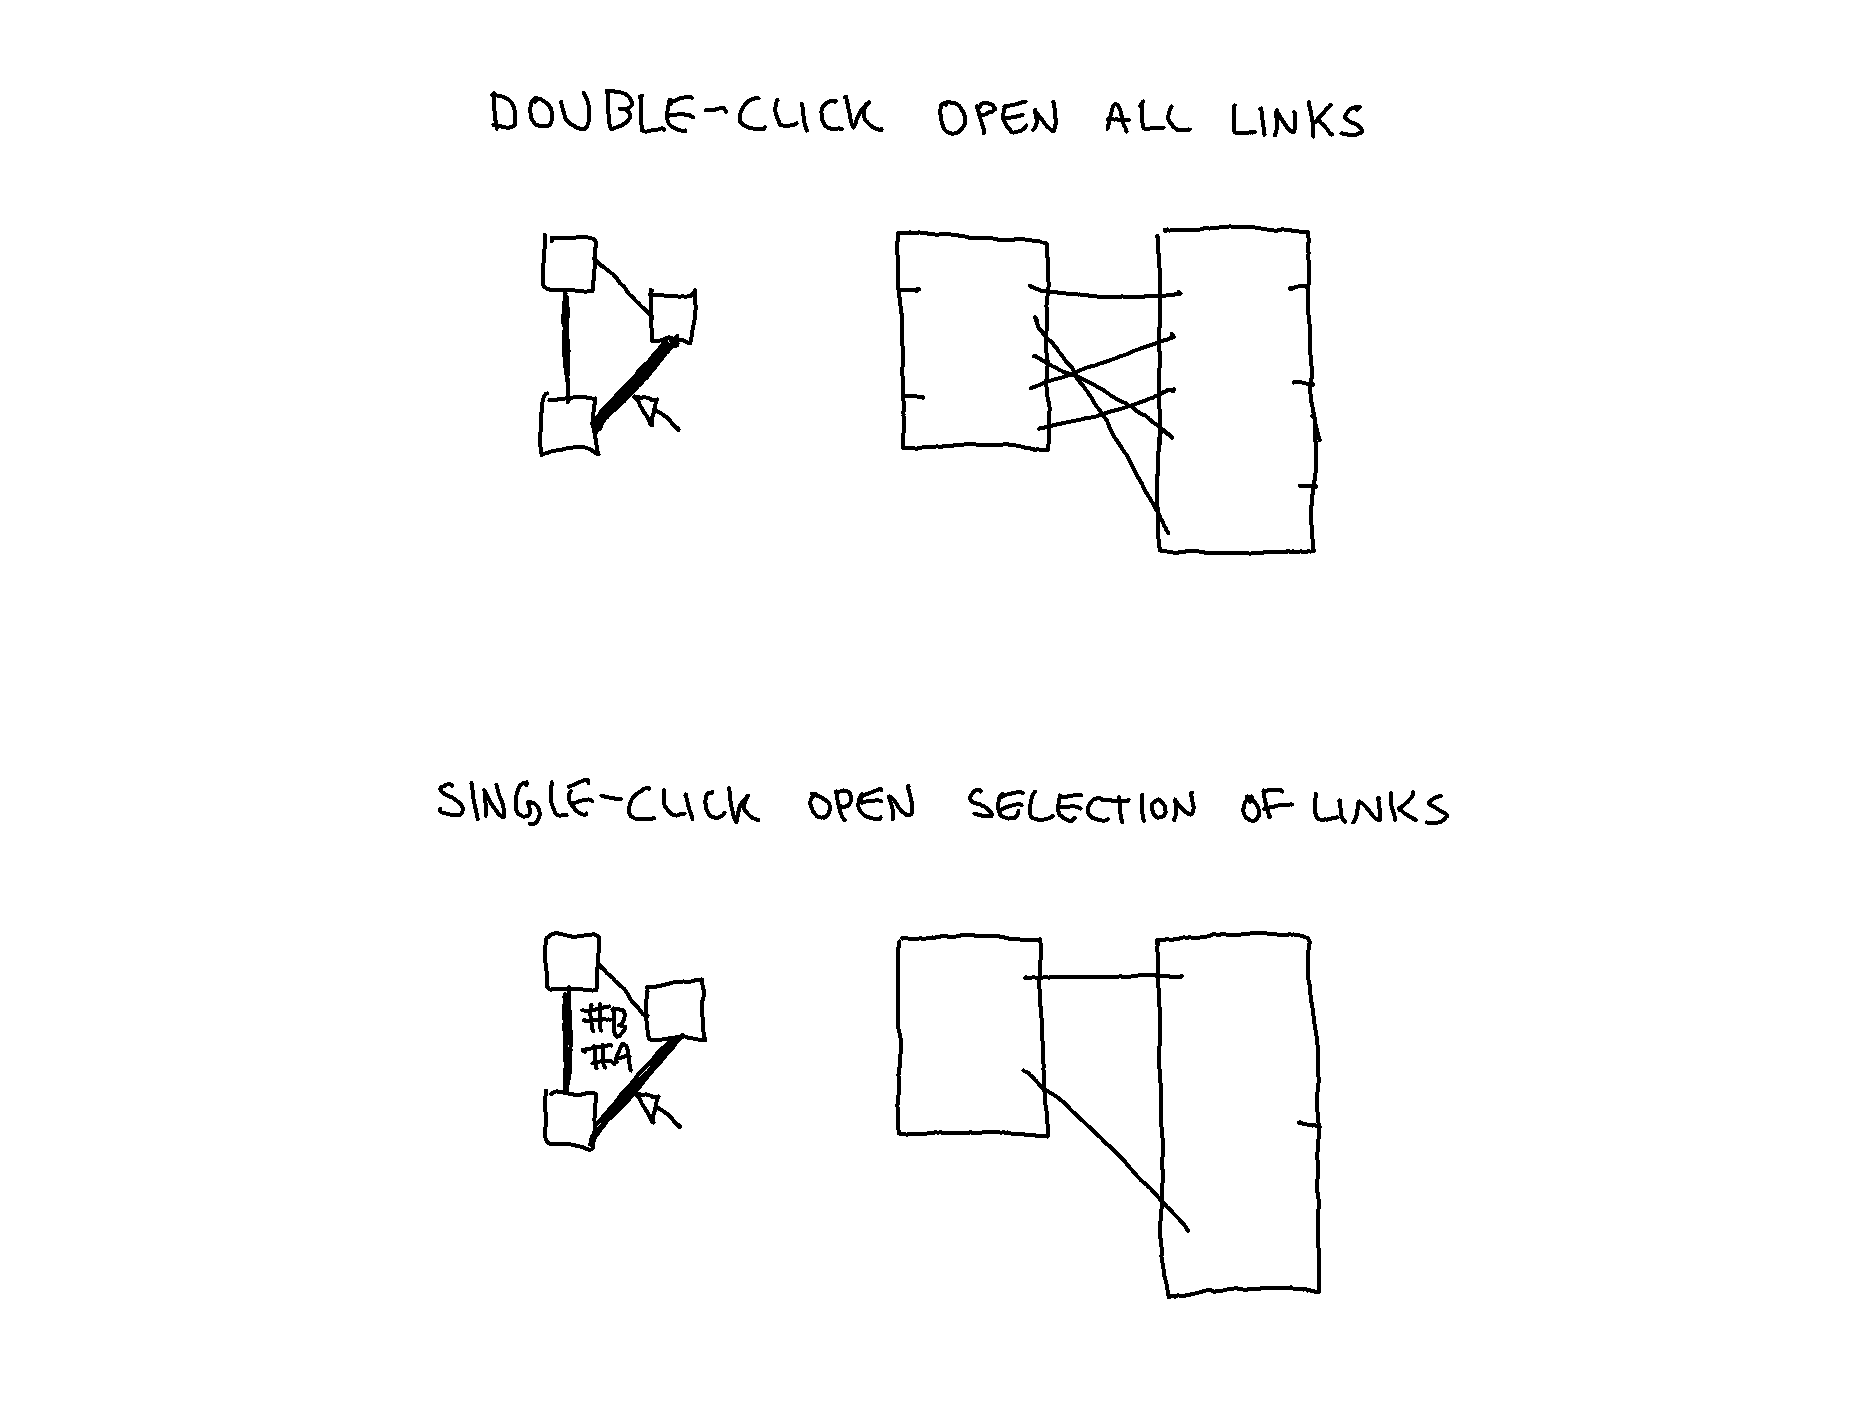 DOUBLE-CLICK OPEN ALL LINKS
SINGLE-CLICK OPEN SELECTION OF LINKS
#B
#A